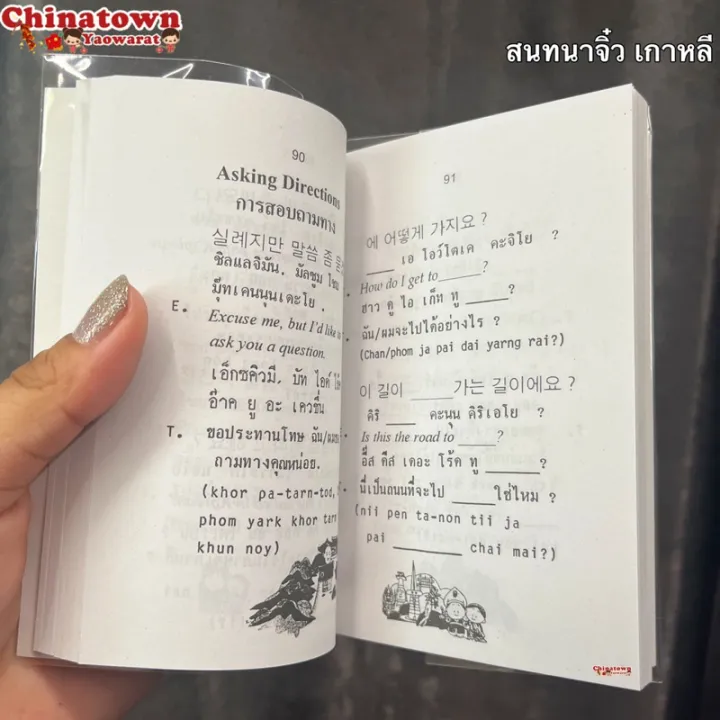 Chinatown
Yaowarat
สนทนาจิ๋ว เกาหลี
90
Asking Directions
การสอบถามทาง
실례지만 말씀 좀
ซิลแลจิมัน. มัลซูม โซม
มุ๊ทเคนนุนเดะโย .
E. Excuse me, but I'd like
ask you a question.
เอ็กซคิวมี. บัท ไอด์
อ๊าค ยู อะ เควชื่น
T. ขอประทานโทษ ฉัน/ผม
ถามทางคุณหน่อย.
(khor pa-tarn-tod,
phom yark khor tarm
khun noy)
91
에 어떻게 가지요 ?
____ เอ โอว์โตเค คะจิโย ?
How do I get to _____?
ฮาว ดู ไอ เก็ท ทู _____?
ฉัน/ผมจะไปได้อย่างไร ?
(Chan/phom ja pai dai yarng rai?)
이 길이 _____ 가는 길이에요 ?
คิริ ____ คะนุน คิริเอโย ?
Is this the road to _____?
อี๊ส ดีส เดอะ โร้ค ทู _____?
นี่เป็นถนนที่จะไป _____ ใช่ไหม ?
(nii pen ta-non tii ja
pai ________ chai mai?)
Chinatown
Yaowarat